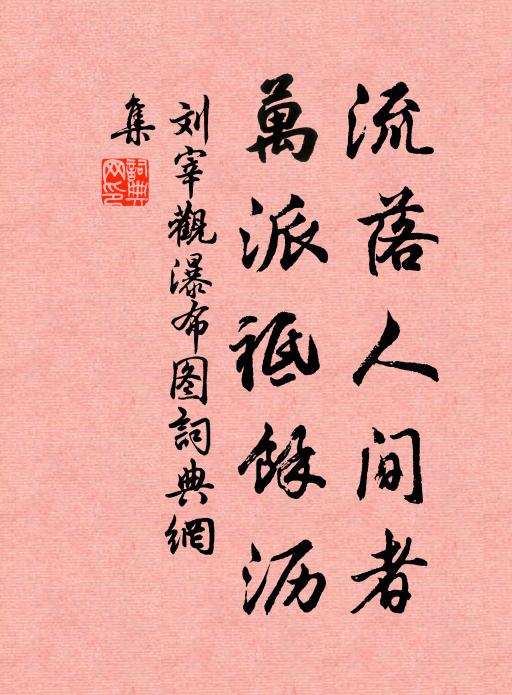 流落人间者
萬派祗餘沥
刘宰觀瀑布图詞典網
集
詞典网印